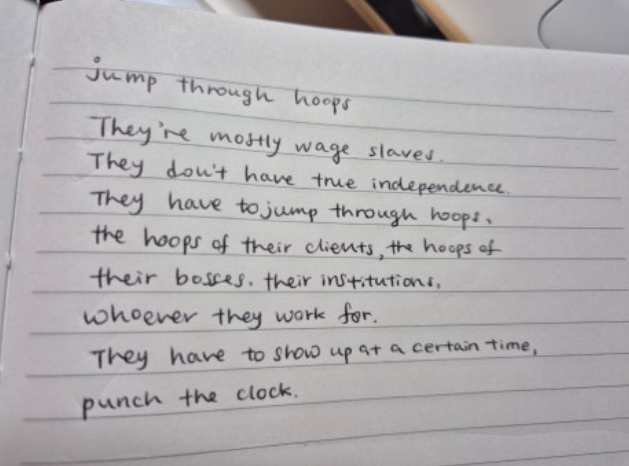 jump through hoops
They're mostly wage slaves.
They don't have true independence.
They have to jump through hoops,
the hoops of their clients, the hoops of
their bosses. their institutions,
whoever they work for.
They have to show up at a certain time,
punch the clock.